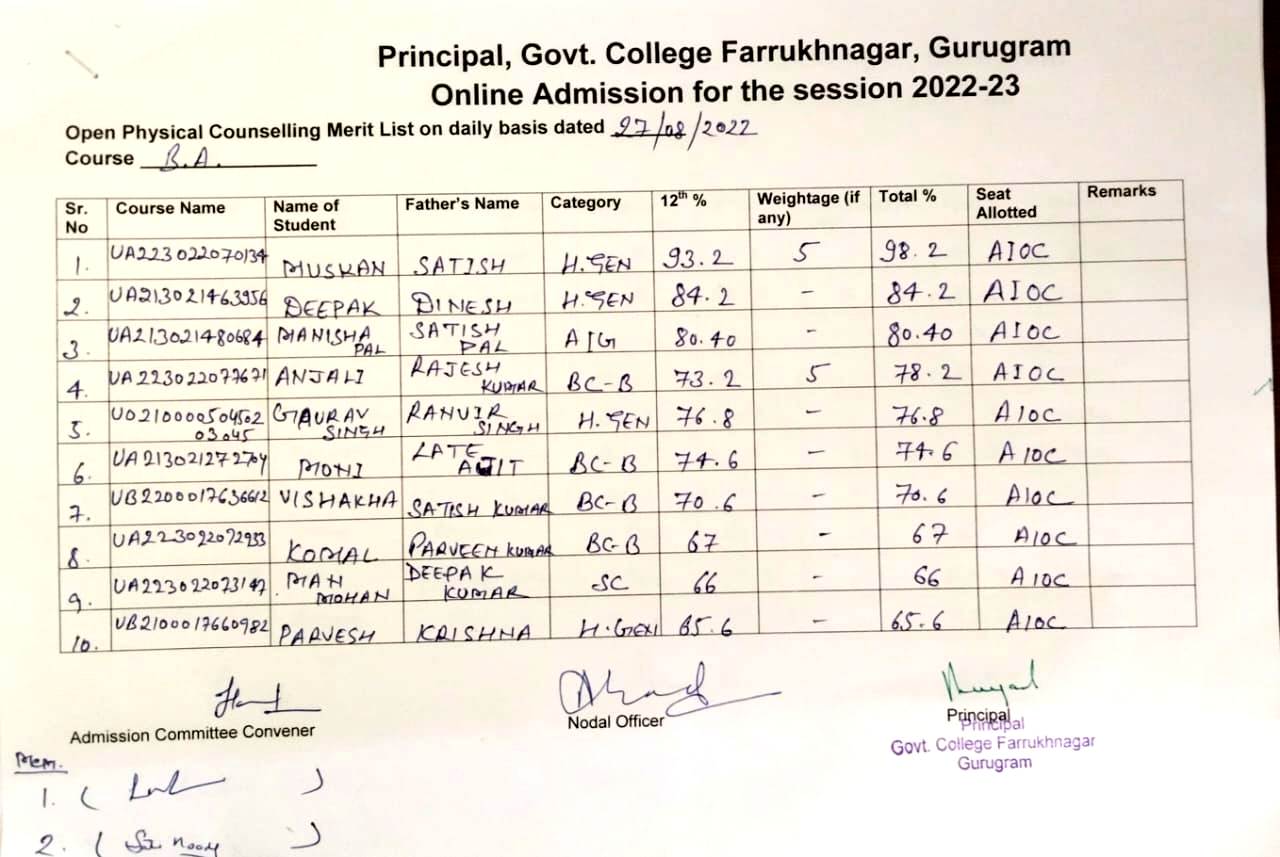 Principal, Govt. College Farrukhnagar, Gurugram
Online Admission for the session 2022-23
Open Physical Counselling Merit List on daily basis dated 27/08/2022
Course B.A.
Sr. No Course Name Name of Student Father's Name Category 12th % Weightage (if any) Total % Seat Allotted Remarks
1. UA223022070134 MUSKAN SATISH H.GEN 93.2 5 98.2 AIOC
2. UA213021463956 DEEPAK DINESH H.GEN 84.2 - 84.2 AIOC
3. UA213021480684 MANISHA PAL SATISH PAL AIG 80.40 - 80.40 AIOC
4. UA223022077671 ANJALI RAJESH KUMAR BC-B 73.2 5 78.2 AIOC
5. UO210000504502 03045 GAURAV SINGH RANVIR SINGH H.GEN 76.8 - 76.8 AIOC
6. UA213021272704 MONI LATE AJIT BC-B 74.6 - 74.6 AIOC
7. UB2200017636612 VISHAKHA SATISH KUMAR BC-B 70.6 - 70.6 AIOC
8. UA223022072933 KOMAL PARVEEN KUMAR BC-B 67 - 67 AIOC
9. UA223022073147 MAN MOHAN DEEPAK KUMAR SC 66 - 66 AIOC
10. UB2100017660982 PARVESH KRISHNA H.GEN 65.6 - 65.6 AIOC
Admission Committee Convener Nodal Officer Principal
Principal
Govt. College Farrukhnagar
Gurugram
Mem.
1. ( )
2. ( )